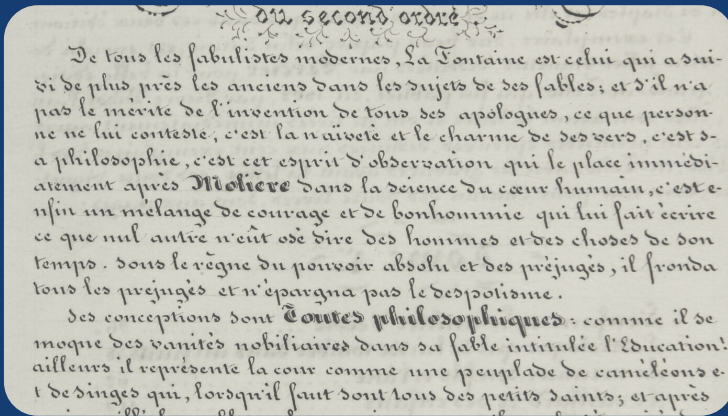 du second ordre
De tous les fabulistes modernes, La Fontaine est celui qui a sui-
vi de plus près les anciens dans les sujets de ses fables; et s'il n'a
pas le mérite de l'invention de tous ses apologues, ce que person-
ne ne lui conteste, c'est la naïveté et le charme de ses vers, c'est s-
a philosophie, c'est cet esprit d'observation qui le place immédi-
atement après Molière dans la science du cœur humain, c'est e-
nfin un mélange de courage et de bonhommie qui lui fait écrire
ce que nul autre n'eût osé dire des hommes et des choses de son
temps. sous le règne du pouvoir absolu et des préjugés, il fronda
tous les préjugés et n'épargna pas le despotisme.
ses conceptions sont Toutes philosophiques: comme il se
moque des vanités nobiliaires dans sa fable intitulée l'Education!
ailleurs il représente la cour comme une peuplade de caméléons e-
t de singes qui, lorsqu'il faut sont tous des petits saints; et après